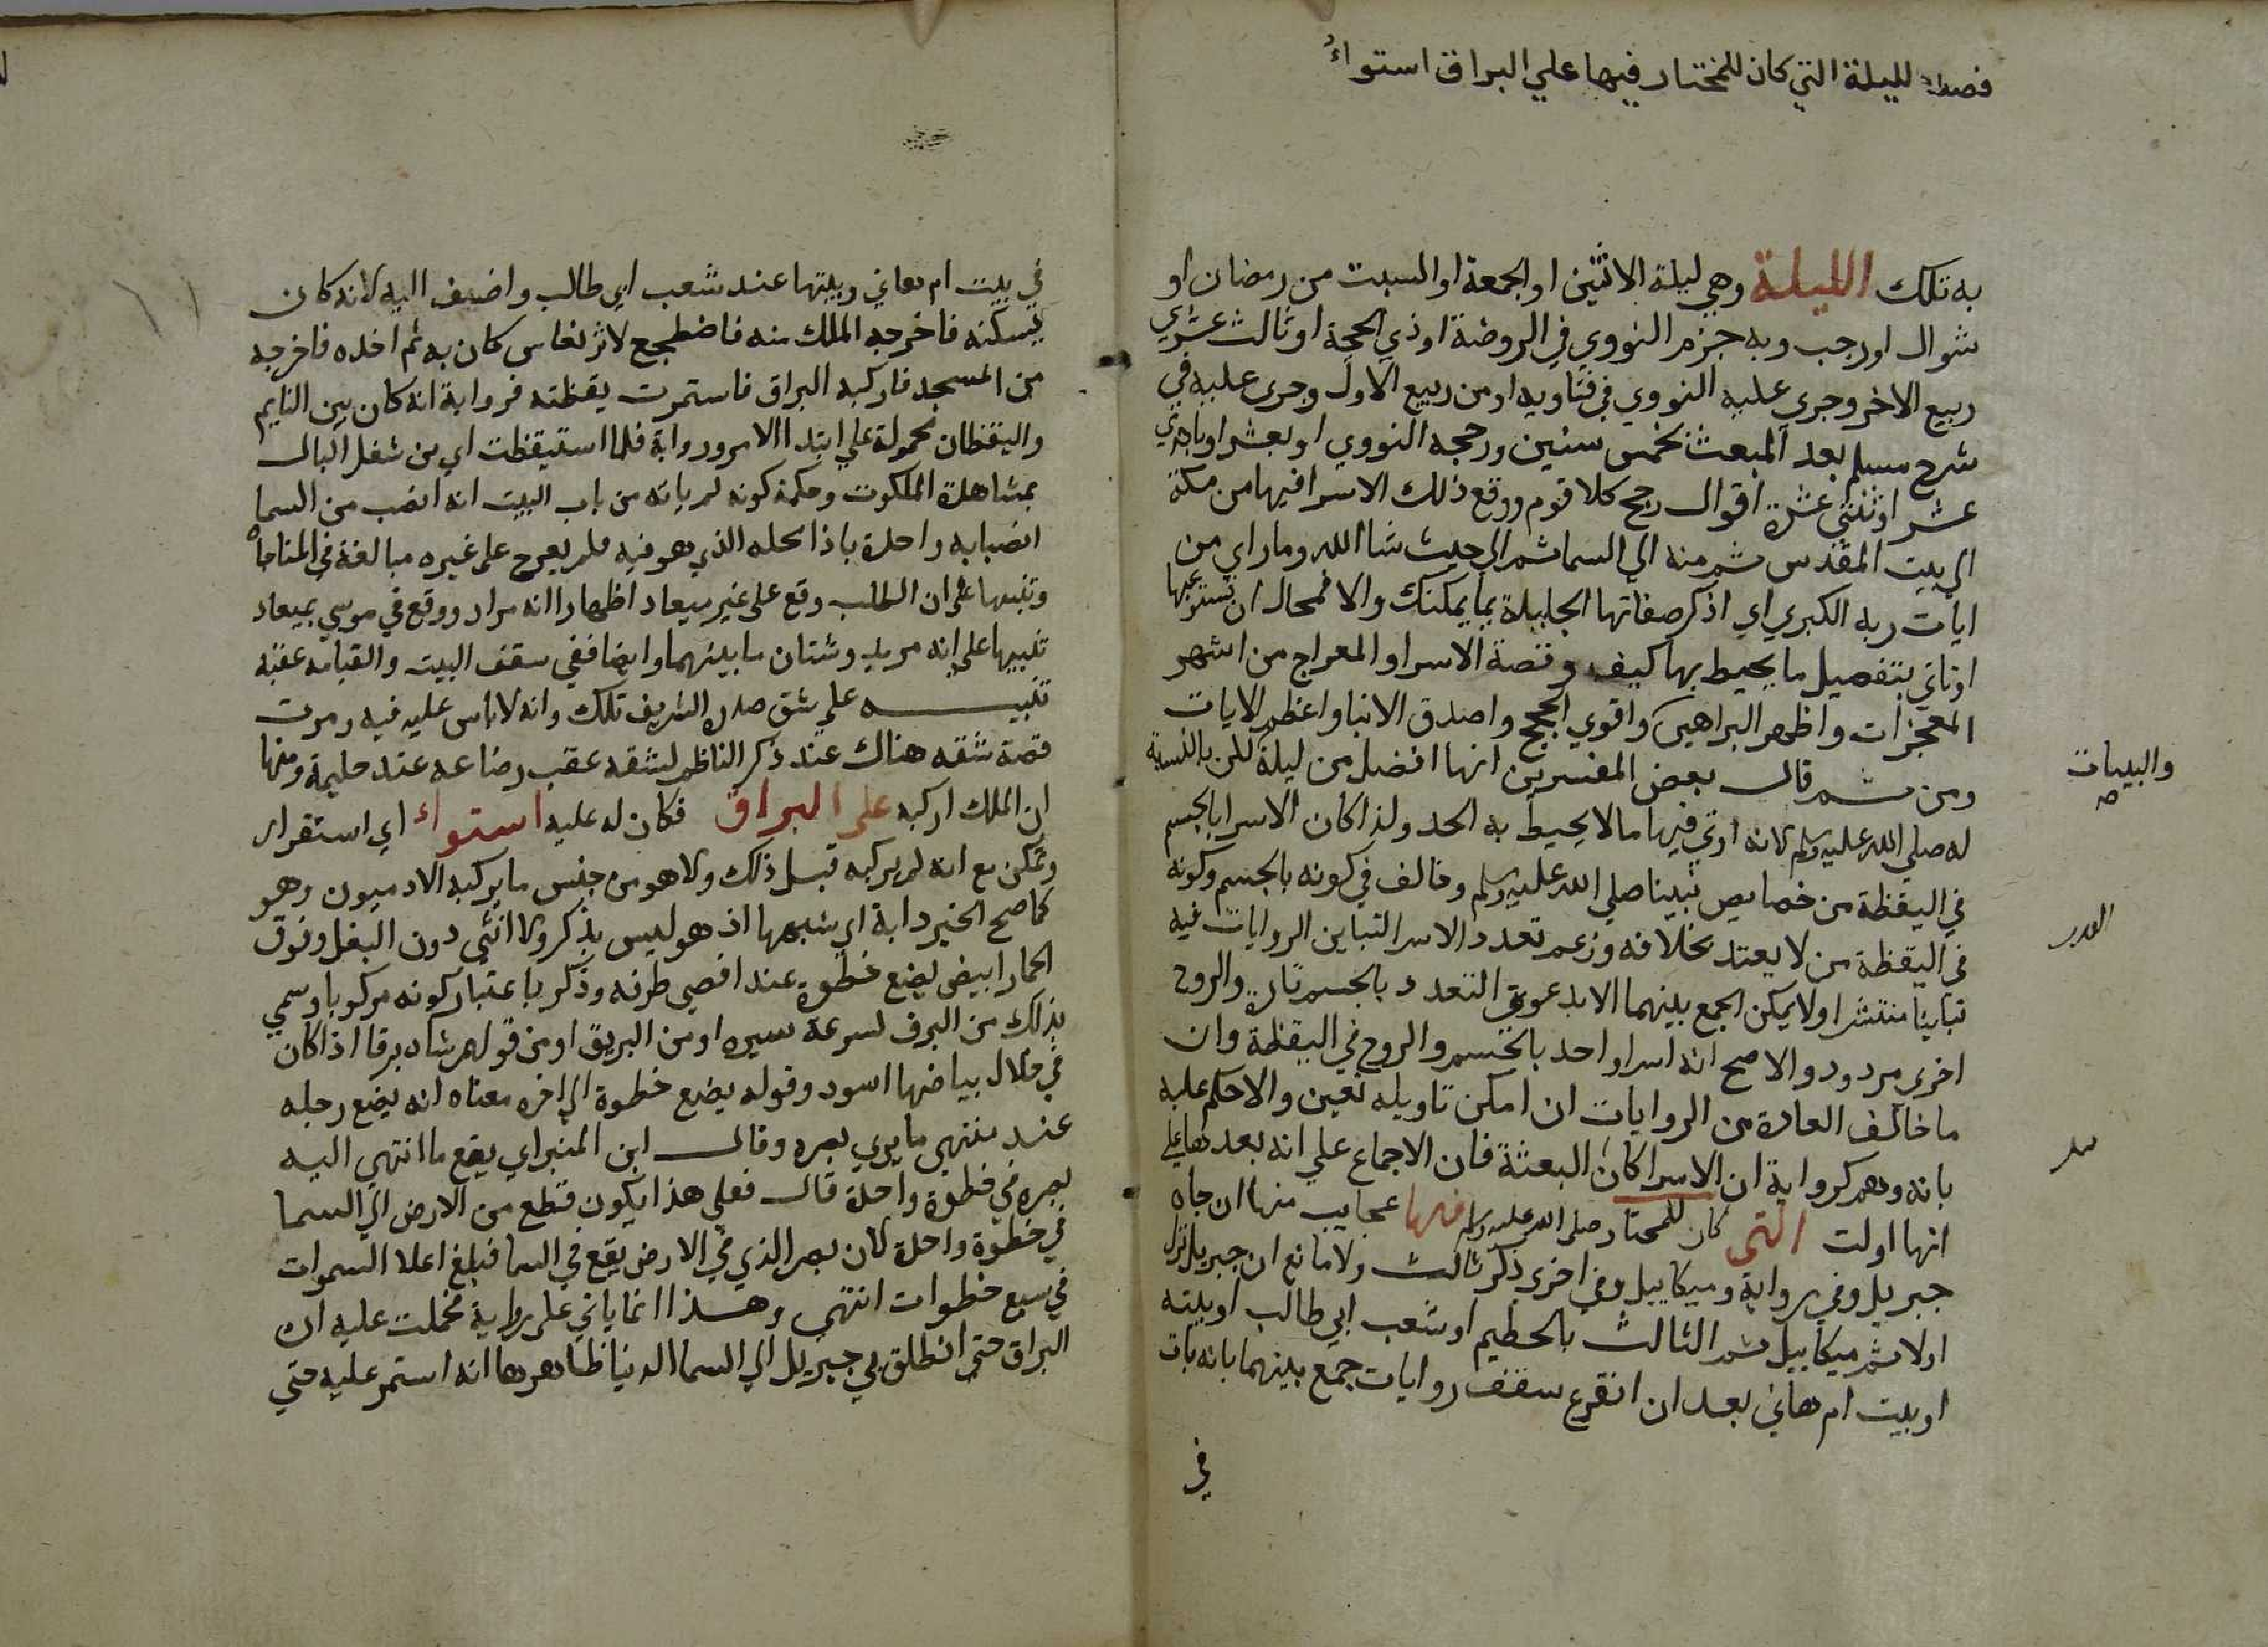 فصف الليلة التي كان للمختار فيها علي البراق استواءُ
به تلك الليلة وهي ليلة الاثنين او الجمعة او السبت من رمضان او
شوال او رجب وبه جزم النووي في الروضة او ذي الحجة او ثالث عشري
ربيع الاخر وجري عليه النووي في فتاويه او من ربيع الاول وجرى عليه في
شرح مسلم بعد المبعث بخمس سنين ورجحه النووي او بعشر او باحدي
عشر او ثنتي عشرة اقوال رجح كلا قوم ووقع ذلك الاسرا فيها من مكة
الي بيت المقدس ثم منه الي السما ثم الي حيث شا الله وما راي من
ايات ربه الكبري اي اذكر صفاتها الجليلة بما يمكنك والا فمحال ان تستوعبها
او تاتي بتفصيل ما يحيط بها كيف وقصة الاسرا والمعراج من اشهر
المعجزات واظهر البراهين واقوي الحجج واصدق الانبا واعظم الايات
والبينات
صح
ومن ثم قال بعض المفسرين انها افضل من ليلة القدر بالنسبة
له صلي الله عليه وسلم لانه اوتي فيها ما لا يحيط به الحد ولذا كان الاسرا بالجسم
في اليقظة من خصايص نبينا صلي الله عليه وسلم وخالف في كونه بالجسم وكونه
القدر
في اليقظة من لا يعتد بخلافه وزعم تعدد الاسرا لتباين الروايات فيه
تباينا منتشرا ولا يمكن الجمع بينهما الا بدعوي التعدد بالجسم تارة والروح
اخرى مردود والاصح انه اسرا واحد بالجسم والروح في اليقظة وان
ما خالف العادة من الروايات ان امكن تاويله تعين والا حكم عليه
بانه وهم كرواية ان الاسرا كان البعثة فان الاجماع علي انه بعدها علي
انها اولت التي كان للمختار صلى الله عليه وسلم فيها عجايب منها ان جاه
جبريل وفي رواية وميكاييل وفي اخرى ذكر ثالث ولا مانع ان جبريل نزل
اولا ثم ميكاييل ثم الثالث بالحطيم او شعب ابي طالب او بيته
او بيت ام هاني بعد ان انفرع سقفه روايات جمع بينهما بانه بات
في
في بيت ام هاني وبيتها عند شعب ابي طالب واضيف اليه لانه كان
يسكنه فاخرجه الملك منه فاضطجع لاثر نعاس كان به ثم اخذه فاخرجه
من المسجد فاركبه البراق فاستمرت يقظته فرواية انه كان بين النايم
واليقظان محمولة علي ابتدا الامر ورواية فلما استيقظت اي من شغل البال
بمشاهدة الملكوت وحكمة كونه لم ياته من باب البيت انه انصب من السما
انصبابه واحدة باذا محله الذي هو فيه فلم يعرج على غيره مبالغة في المناجاه
وتنبيها على ان الطلب وقع على غير ميعاد اظهارا انه مراد ووقع في موسي بميعاد
تنبيها علي انه مريد وشتان ما بينهما وايضا ففي سقف البيت والقيامه عقبه
تنبيه علي شق صدره الشريف تلك وانه لا باس عليه فيه ومرت
قصة شقه هناك عند ذكر الناظم لشقه عقب رضاعه عند حليمة ومنها
ان الملك اركبه على البراق فكان له عليه استواء اي استقرار
وتمكن مع انه لم يركبه قبل ذلك ولا هو من جنس ما يركبه الادميون وهو
كما صح الخبر دابة اي شبهها اذ هو ليس بذكر ولا انثي دون البغل وفوق
الحمار ابيض يضع خطوه عند اقصي طرفه وذكر باعتبار كونه مركوبا وسمي
بذلك من البرق لسرعة سيره او من البريق او من قولهم شاه برقا اذا كان
في خلال بياضها اسود وقوله يضع خطوة الي اخره معناه انه يضع رجله
عند منتهي ما يري بصره وقال ابن المنير اي يقع ما انتهي اليه
بصره في خطوة واحدة قال فعلى هذا يكون قطع من الارض الي السما
في خطوة واحدة لان بصر الذي في الارض يقع في السما فبلغ اعلا السموات
في سبع خطوات انتهي وهذا انما ياتي على رواية فحملت عليه ان
البراق حتي انطلق بي جبريل الي السما الدنيا ظاهرها انه استمر عليه حتي